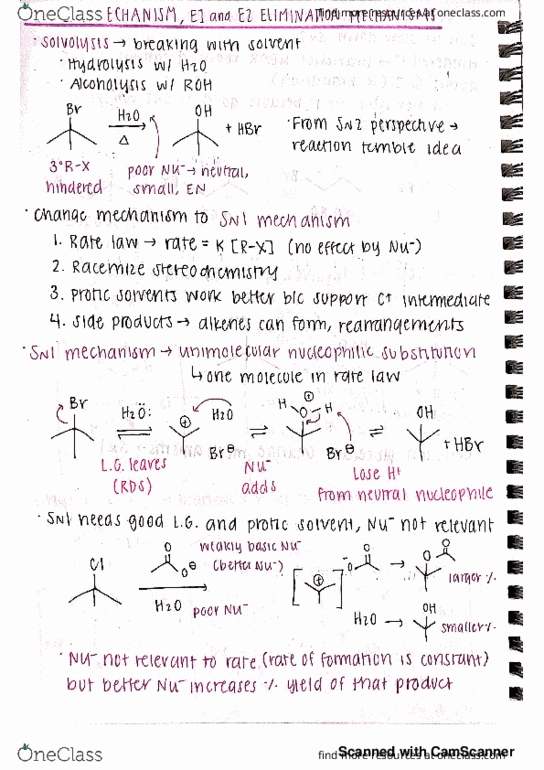 OneClass
ECHANISM, E1 and E2 ELIMINATION MECHANISMS
find more resources at oneclass.com
· solvolysis → breaking with solvent
· Hydrolysis w/ H2O
· Alcoholysis w/ ROH
Br
H2O
Δ
OH
+ HBr
· From SN2 perspective →
reaction terrible idea
3° R-X
hindered
poor Nu⁻ → neutral,
small, EN
· change mechanism to SN1 mechanism
1. Rate law → rate = K [R-X] (no effect by Nu⁻)
2. Racemize stereochemistry
3. protic solvents work better b/c support C+ intermediate
4. side products → alkenes can form, rearrangements
· SN1 mechanism → unimolecular nucleophilic substitution
↳ one molecule in rate law
Br
H2Ö:
⊕
H2O
Br⊖
H
⊕
O
H
Br⊖
OH
+ HBr
L.G. leaves
(RDS)
Nu⁻
adds
Lose H+
from neutral nucleophile
· SN1 needs good L.G. and protic solvent, Nu⁻ not relevant
Cl
O
O⊖
weakly basic Nu⁻
(better Nu⁻)
H2O
poor Nu⁻
⊕
⊖O
O
→
O
O
larger %
H2O →
OH
smaller %
· Nu⁻ not relevant to rate (rate of formation is constant)
but better Nu⁻ increases % yield of that product
OneClass
find more resources at oneclass.com
Scanned with CamScanner